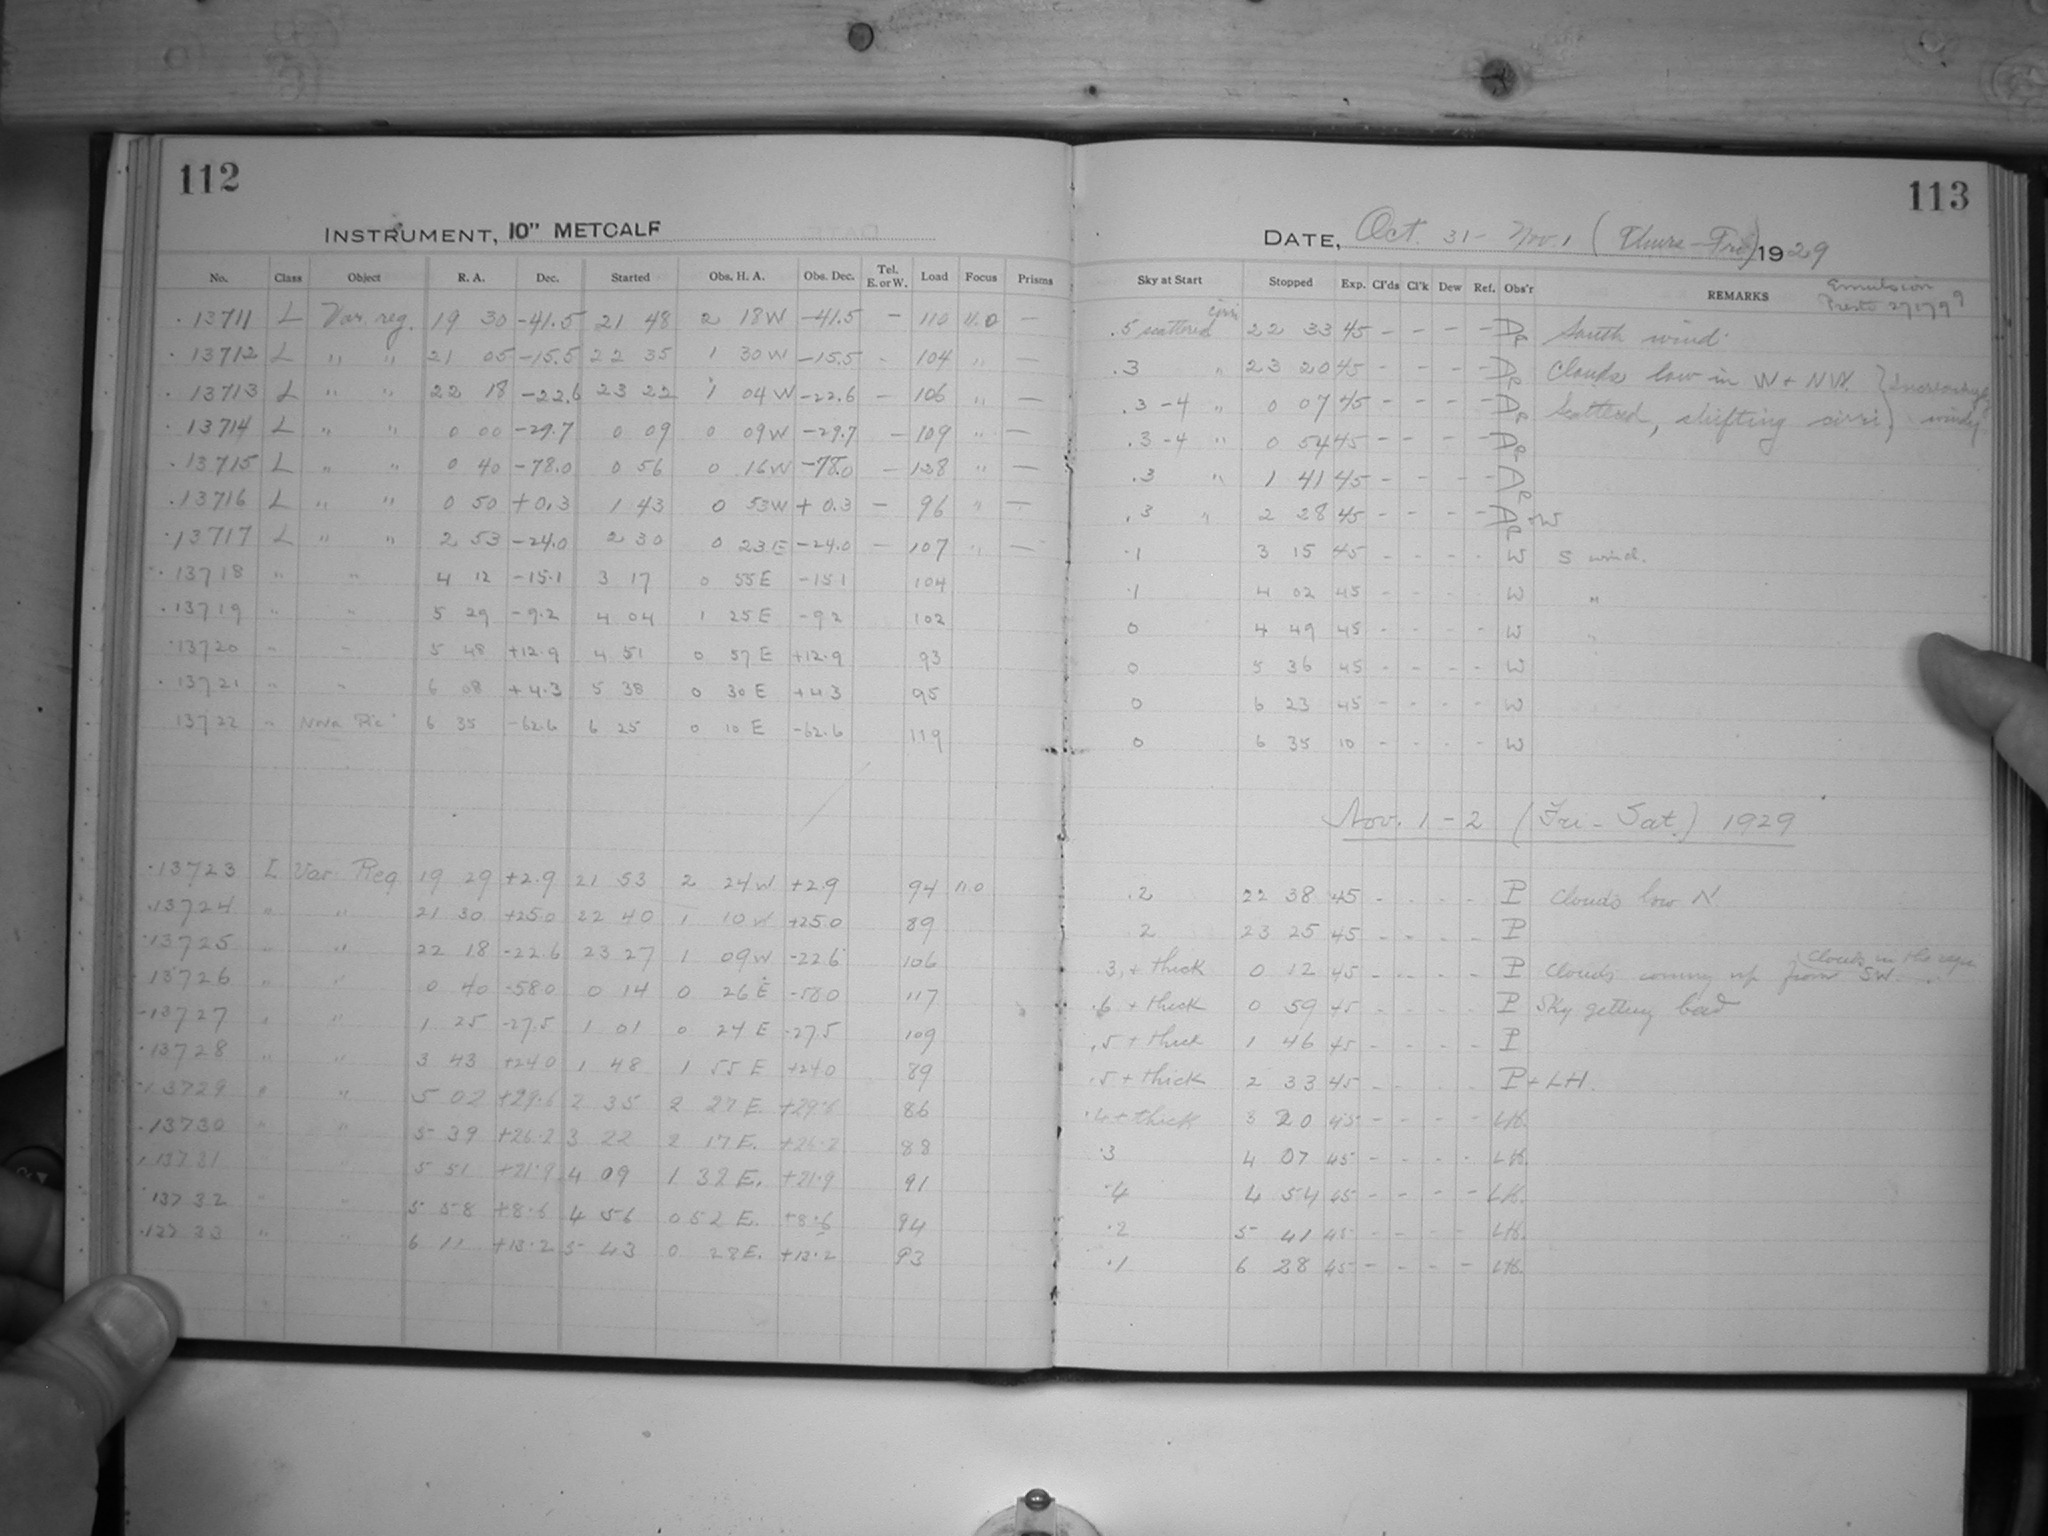 112
INSTRUMENT, 10" METCALF
No. Class Object R. A. Dec. Started Obs. H. A. Obs. Dec. Tel. E. or W. Load Focus Prisms
13711 L Var. reg. 19 30 -41.5 21 48 2 18W -41.5 - 110 11.0 -
13712 L " " 21 05 -15.5 22 35 1 30W -15.5 - 104 " -
13713 L " " 22 18 -22.6 23 22 1 04W -22.6 - 106 " -
13714 L " " 0 00 -29.7 0 09 0 09W -29.7 - 109 " -
13715 L " " 0 40 -78.0 0 56 0 16W -78.0 - 128 " -
13716 L " " 0 50 +0.3 1 43 0 53W +0.3 - 96 " -
13717 L " " 2 53 -24.0 2 30 0 23E -24.0 - 107 " -
13718 " " 4 12 -15.1 3 17 0 55E -15.1 104
13719 " " 5 29 -9.2 4 04 1 25E -9.2 102
13720 " " 5 48 +12.9 4 51 0 57E +12.9 93
13721 " " 6 08 +4.3 5 38 0 30E +4.3 95
13722 " Nova Pic 6 35 -62.6 6 25 0 10E -62.6 119
13723 L Var Reg 19 29 +2.9 21 53 2 24W +2.9 94 11.0
13724 " " 21 30 +25.0 22 40 1 10W +25.0 89
13725 " " 22 18 -22.6 23 27 1 09W -22.6 106
13726 " " 0 40 -58.0 0 14 0 26E -58.0 117
13727 " " 1 25 -27.5 1 01 0 24E -27.5 109
13728 " " 3 43 +24.0 1 48 1 55E +24.0 89
13729 " " 5 02 +29.6 2 35 2 27E. +29.6 86
13730 " " 5 39 +26.2 3 22 2 17E. +26.2 88
13731 " " 5 51 +21.9 4 09 1 32E. +21.9 91
13732 " " 5 58 +8.6 4 56 0 52E. +8.6 94
13733 " " 6 11 +13.2 5 43 0 28E. +13.2 93
113
DATE, Oct. 31 - Nov. 1 (Thurs - Fri) 1929
Sky at Start Stopped Exp. Cl'ds Cl'k Dew Ref. Obs'r REMARKS Emulsion
Presto 27179
.5 scattered cirri 22 33 45 - - - - South wind.
.3 " 23 20 45 - - - - Clouds low in W + NW. } Increasingly
.3-4 " 0 07 45 - - - - Scattered, shifting cirri } windy
.3-4 " 0 54 45 - - - -
.3 " 1 41 45 - - - -
.3 " 2 28 45 - - - - + W
.1 3 15 45 - - - - W S wind.
.1 4 02 45 - - - - W "
0 4 49 45 - - - - W "
0 5 36 45 - - - - W
0 6 23 45 - - - - W
0 6 35 10 - - - - W
Nov. 1-2 (Fri - Sat.) 1929
.2 22 38 45 - - - - P Clouds low N
.2 23 25 45 - - - - P
.3 + thick 0 12 45 - - - - P Clouds coming up from SW. Clouds in the
.6 + thick 0 59 45 - - - - P Sky getting bad
.5 + thick 1 46 45 - - - - P
.5 + thick 2 33 45 - - - - P + LH.
.4 + thick 3 20 45 - - - - LH.
.3 4 07 45 - - - - LH.
.4 4 54 45 - - - - LH.
.2 5 41 45 - - - - LH.
.1 6 28 45 - - - - LH.